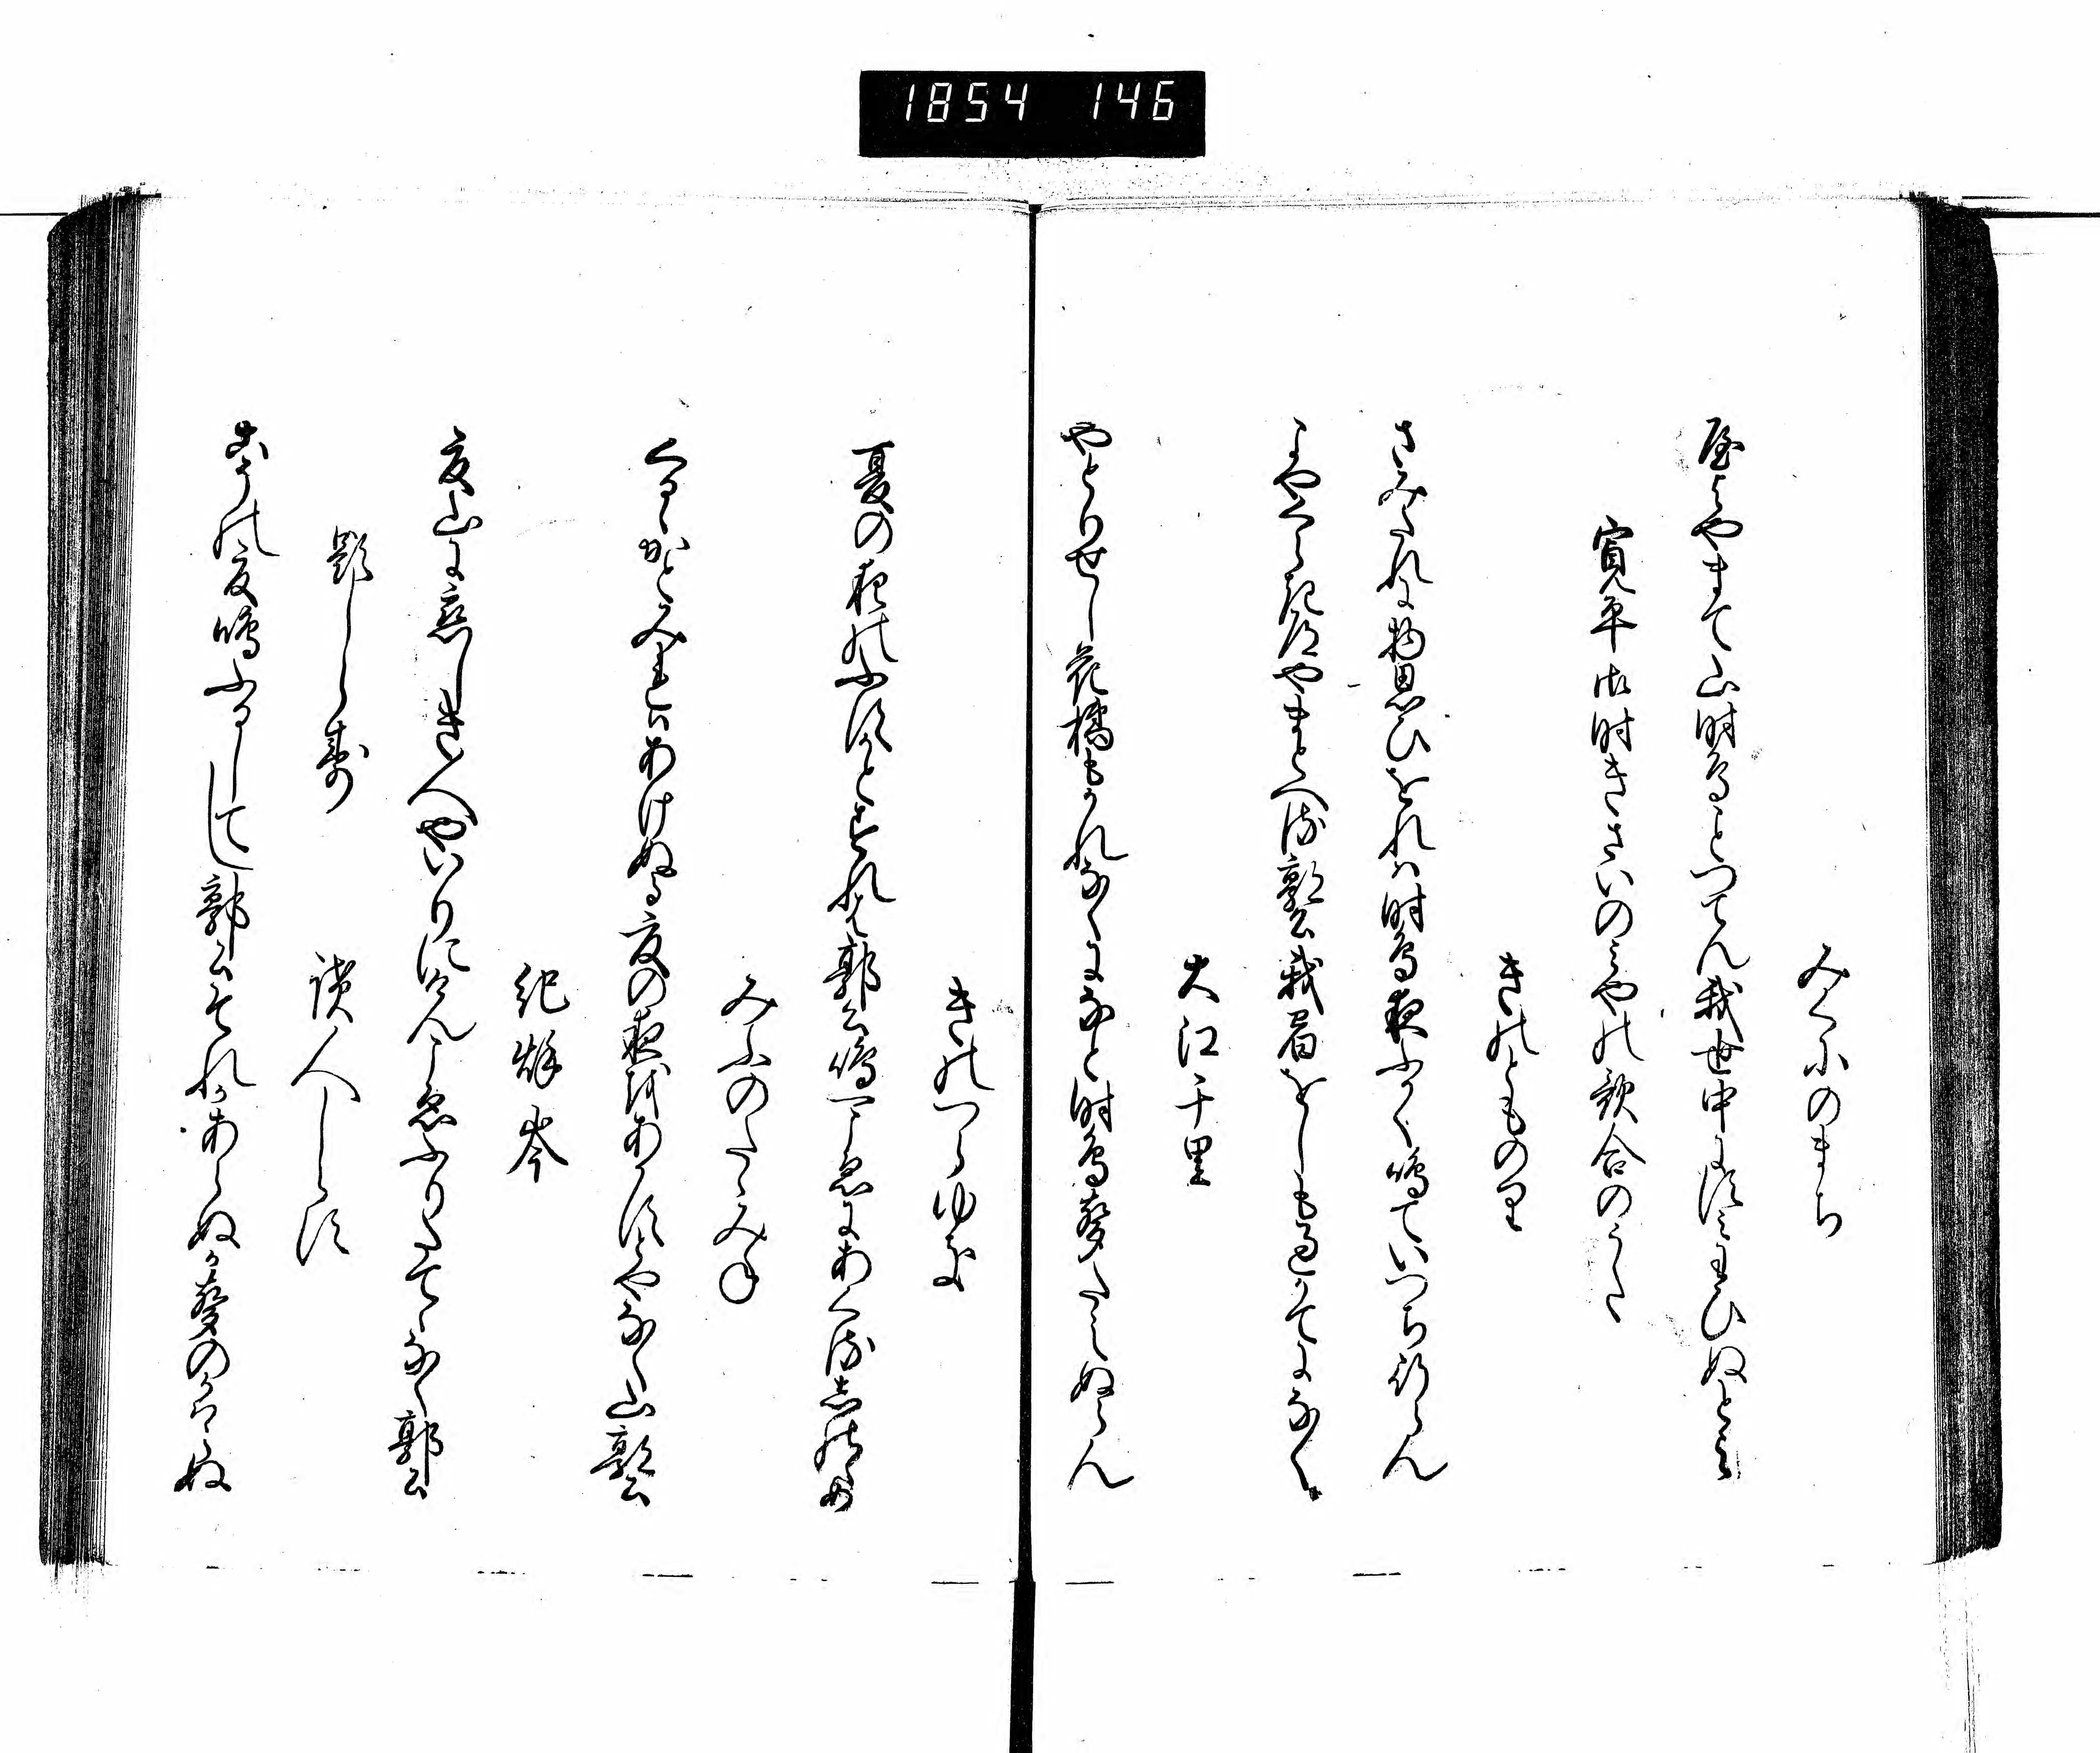 1854 146
みくにのまち
屋よやまて山時鳥ことつてん我世中にすみわひぬとよ
寛平御時きさいのみやの歌合のうた
きのとものり
さみたれに物思ひをれは時鳥夜ふかく鳴ていつち行らん
夜やくらき道やまとへる郭公我宿をしも過かてになく
大江千里
やとりせし花橘もかれなくになと時鳥声たえぬらん
きのつらゆき
夏の夜のふすかとすれは郭公鳴一こゑにあくるしのゝめ
みふのたゝみね
くるゝかとみれはあけぬる夏の夜をあかすとやなく山郭公
紀秋岑
夏山に恋しき人やいりにけんこゑふりたてゝなく郭公
題しらす
読人しらす
こその夏鳴ふるしてし郭公それかあらぬか声のかはらぬ